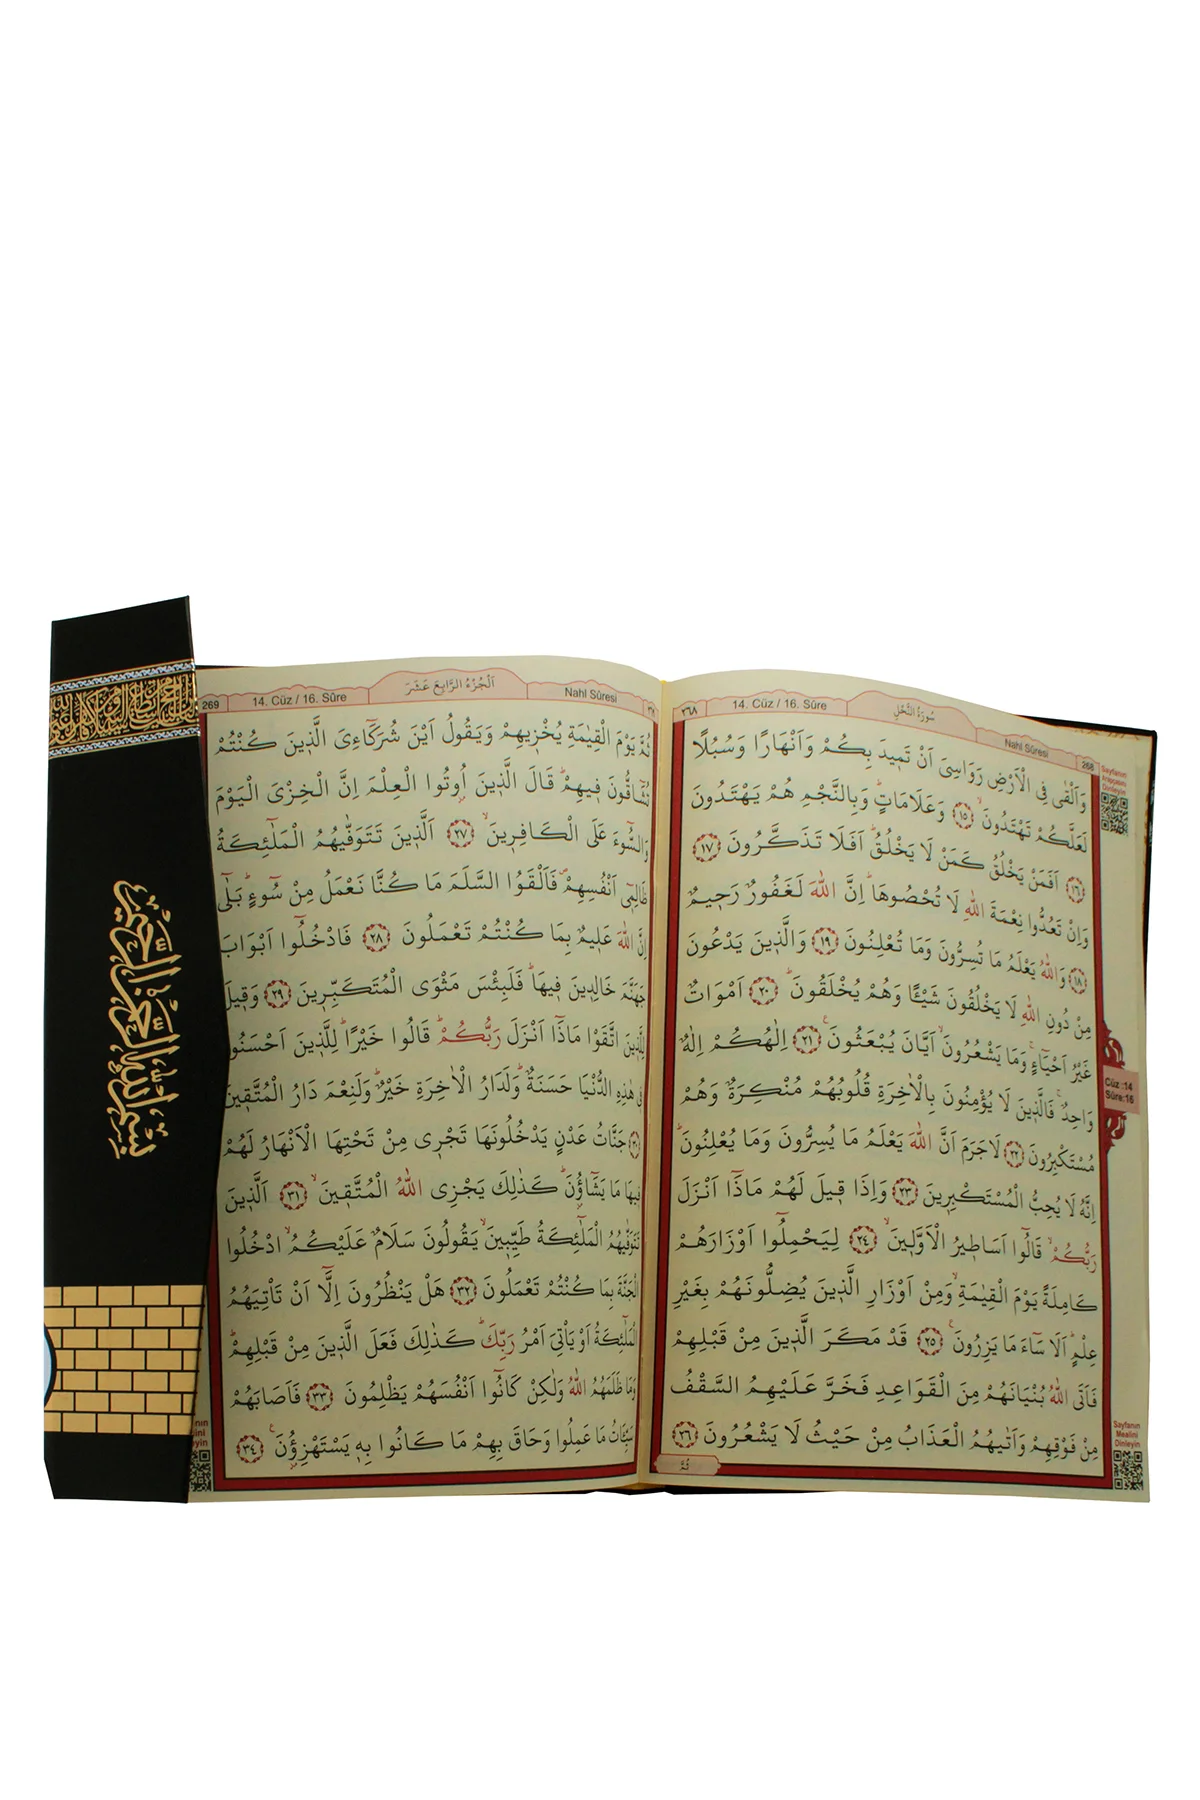 سُورَةُ النَّحْلِ
14. Cüz / 16. Sûre
Nahl Sûresi
268
٢٦٨
وَاَلْقٰى فِى الْاَرْضِ رَوَاسِىَ اَنْ تَمٖيدَ بِكُمْ وَاَنْهَارًا وَسُبُلًا
لَعَلَّكُمْ تَهْتَدُونَۙ ﴿١٥﴾ وَعَلَامَاتٍۜ وَبِالنَّجْمِ هُمْ يَهْتَدُونَ
﴿١٦﴾ اَفَمَنْ يَخْلُقُ كَمَنْ لَا يَخْلُقُۜ اَفَلَا تَذَكَّرُونَ ﴿١٧﴾
وَاِنْ تَعُدُّوا نِعْمَةَ اللّٰهِ لَا تُحْصُوهَاۜ اِنَّ اللّٰهَ لَغَفُورٌ رَحٖيمٌ
﴿١٨﴾ وَاللّٰهُ يَعْلَمُ مَا تُسِرُّونَ وَمَا تُعْلِنُونَ ﴿١٩﴾ وَالَّذٖينَ يَدْعُونَ
مِنْ دُونِ اللّٰهِ لَا يَخْلُقُونَ شَيْـًٔا وَهُمْ يُخْلَقُونَۜ ﴿٢٠﴾ اَمْوَاتٌ
غَيْرُ اَحْيَٓاءٍۚ وَمَا يَشْعُرُونَۙ اَيَّانَ يُبْعَثُونَ۟ ﴿٢١﴾ اِلٰهُكُمْ اِلٰهٌ
وَاحِدٌۚ فَالَّذٖينَ لَا يُؤْمِنُونَ بِالْاٰخِرَةِ قُلُوبُهُمْ مُنْكِرَةٌ وَهُمْ
مُسْتَكْبِرُونَ ﴿٢٢﴾ لَاجَرَمَ اَنَّ اللّٰهَ يَعْلَمُ مَا يُسِرُّونَ وَمَا يُعْلِنُونَۜ
اِنَّهُ لَا يُحِبُّ الْمُسْتَكْبِرٖينَ ﴿٢٣﴾ وَاِذَا قٖيلَ لَهُمْ مَاذَٓا اَنْزَلَ
رَبُّكُمْۙ قَالُٓوا اَسَاطٖيرُ الْاَوَّلٖينَۙ ﴿٢٤﴾ لِيَحْمِلُٓوا اَوْزَارَهُمْ
كَامِلَةً يَوْمَ الْقِيٰمَةِۙ وَمِنْ اَوْزَارِ الَّذٖينَ يُضِلُّونَهُمْ بِغَيْرِ
عِلْمٍۜ اَلَا سَٓاءَ مَا يَزِرُونَ۟ ﴿٢٥﴾ قَدْ مَكَرَ الَّذٖينَ مِنْ قَبْلِهِمْ
فَاَتَى اللّٰهُ بُنْيَانَهُمْ مِنَ الْقَوَاعِدِ فَخَرَّ عَلَيْهِمُ السَّقْفُ
مِنْ فَوْقِهِمْ وَاَتٰيهُمُ الْعَذَابُ مِنْ حَيْثُ لَا يَشْعُرُونَ ﴿٢٦﴾
ثُمَّ
Sayfanın
Arapçasını
Dinleyin
Cüz :14
Sûre:16
Sayfanın
Mealini
Dinleyin
اَلْجُزْءُ الرَّابِعَ عَشَرَ
269
14. Cüz / 16. Sûre
Nahl Sûresi
ثُمَّ يَوْمَ الْقِيٰمَةِ يُخْزٖيهِمْ وَيَقُولُ اَيْنَ شُرَكَٓاءِىَ الَّذٖينَ كُنْتُمْ
تُشَٓاقُّونَ فٖيهِمْۜ قَالَ الَّذٖينَ اُوتُوا الْعِلْمَ اِنَّ الْخِزْىَ الْيَوْمَ
وَالسُّٓوءَ عَلَى الْكَافِرٖينَۙ ﴿٢٧﴾ اَلَّذٖينَ تَتَوَفّٰيهُمُ الْمَلٰٓئِكَةُ
ظَالِمٖٓى اَنْفُسِهِمْۖ فَاَلْقَوُا السَّلَمَ مَا كُنَّا نَعْمَلُ مِنْ سُٓوءٍۜ بَلٰٓى
اِنَّ اللّٰهَ عَلٖيمٌ بِمَا كُنْتُمْ تَعْمَلُونَ ﴿٢٨﴾ فَادْخُلُٓوا اَبْوَابَ
جَهَنَّمَ خَالِدٖينَ فٖيهَاۜ فَلَبِئْسَ مَثْوَى الْمُتَكَبِّرٖينَ ﴿٢٩﴾ وَقٖيلَ
لِلَّذٖينَ اتَّقَوْا مَاذَٓا اَنْزَلَ رَبُّكُمْۜ قَالُوا خَيْرًاۜ لِلَّذٖينَ اَحْسَنُوا
فٖى هٰذِهِ الدُّنْيَا حَسَنَةٌۜ وَلَدَارُ الْاٰخِرَةِ خَيْرٌۜ وَلَنِعْمَ دَارُ الْمُتَّقٖينَ
﴿٣٠﴾ جَنَّاتُ عَدْنٍ يَدْخُلُونَهَا تَجْرٖى مِنْ تَحْتِهَا الْاَنْهَارُ لَهُمْ
فٖيهَا مَا يَشَٓاؤُ۫نَۜ كَذٰلِكَ يَجْزِى اللّٰهُ الْمُتَّقٖينَۙ ﴿٣١﴾ اَلَّذٖينَ
تَتَوَفّٰيهُمُ الْمَلٰٓئِكَةُ طَيِّبٖينَۙ يَقُولُونَ سَلَامٌ عَلَيْكُمُۙ ادْخُلُوا
الْجَنَّةَ بِمَا كُنْتُمْ تَعْمَلُونَ ﴿٣٢﴾ هَلْ يَنْظُرُونَ اِلَّٓا اَنْ تَاْتِيَهُمُ
الْمَلٰٓئِكَةُ اَوْ يَاْتِىَ اَمْرُ رَبِّكَۜ كَذٰلِكَ فَعَلَ الَّذٖينَ مِنْ قَبْلِهِمْۜ
وَمَا ظَلَمَهُمُ اللّٰهُ وَلٰكِنْ كَانُٓوا اَنْفُسَهُمْ يَظْلِمُونَ ﴿٣٣﴾ فَاَصَابَهُمْ
سَيِّـَٔاتُ مَا عَمِلُوا وَحَاقَ بِهِمْ مَا كَانُوا بِهٖ يَسْتَهْزِؤُ۫نَ۟ ﴿٣٤﴾
بسم الله الرحمن الرحيم